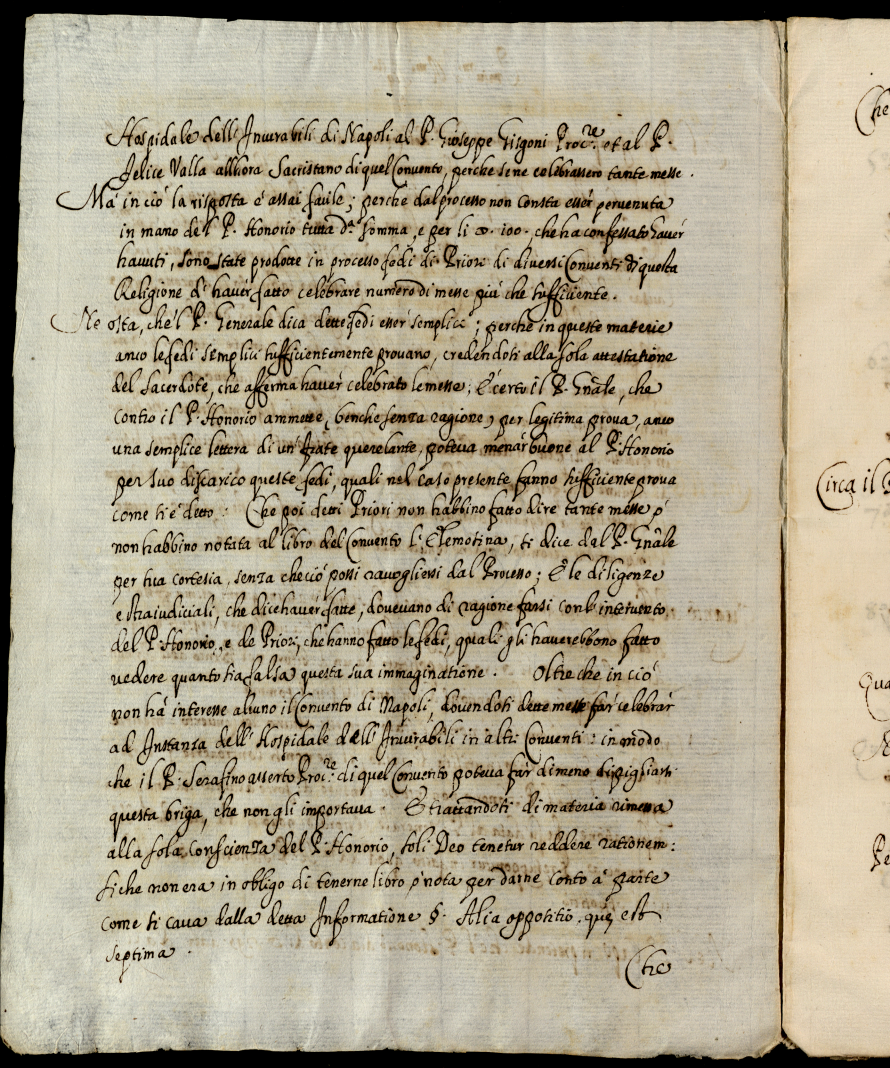 Hospidale delli Incurabili di Napoli al P. Gioseppe Gisgoni Proc.re et al P.
Felice Valla allhora Sacristano di quel Convento, perche se ne celebrassero tante messe.
Ma in ciò la risposta è assai facile; perche dal processo non consta esser pervenuta
in mano del P. Honorio tutta d.a somma, e per li ∞. 100. che ha confessato haver
havuti, sono state prodotte in processo fedi di Priori di diversi Conventi di questa
Religione di haver fatto celebrare numero di messe più che sufficiente.
Ne osta, che'l P. Generale dica dette fedi esser semplici; perche in queste materie
anco le fedi semplici sufficientemente provano, credendosi alla sola attestatione
del Sacerdote, che afferma haver celebrato le messe; E certo il P. Gnãle, che
contro il P. Honorio ammette, benche senza ragione, per legitima prova, anco
una semplice lettera di un' frate querelante, poteva menar buone al P. Honorio
per suo discarico queste fedi, quali nel caso presente fanno sufficiente prova
come si è detto: Che poi detti Priori non habbino fatto dire tante messe ò
non habbino notata al libro del Convento l'Elemosina, si dice dal P. Gnãle
per sua cortesia, senza che ciò possi raccogliersi dal Processo; E le diligenze
estraiudiciali, che dice haver fatte, dovevano di ragione farsi con l'intervento
del P. Honorio, e de Priori, che hanno fatto le fedi, quali gli haverebbono fatto
vedere quanto sia falsa questa sua immaginatione. Oltre che in ciò
non hà interesse alcuno il Convento di Napoli, dovendosi dette messe far celebrar
ad Instanza dell' Hospidale dell' Incurabili in altri Conventi: in modo
che il P. Serafino asserto Proc.re di quel Convento poteva far di meno di pigliarsi
questa briga, che non gli importava. E trattandosi di materia rimessa
alla sola conscienza del P. Honorio, soli Deo tenetur reddere rationem:
si che non era in obligo di tenerne libro, ò nota per darne conto à parte
come si cava dalla detta Informatione §. Alia oppositio, quę est
septima.
Che
Circa il